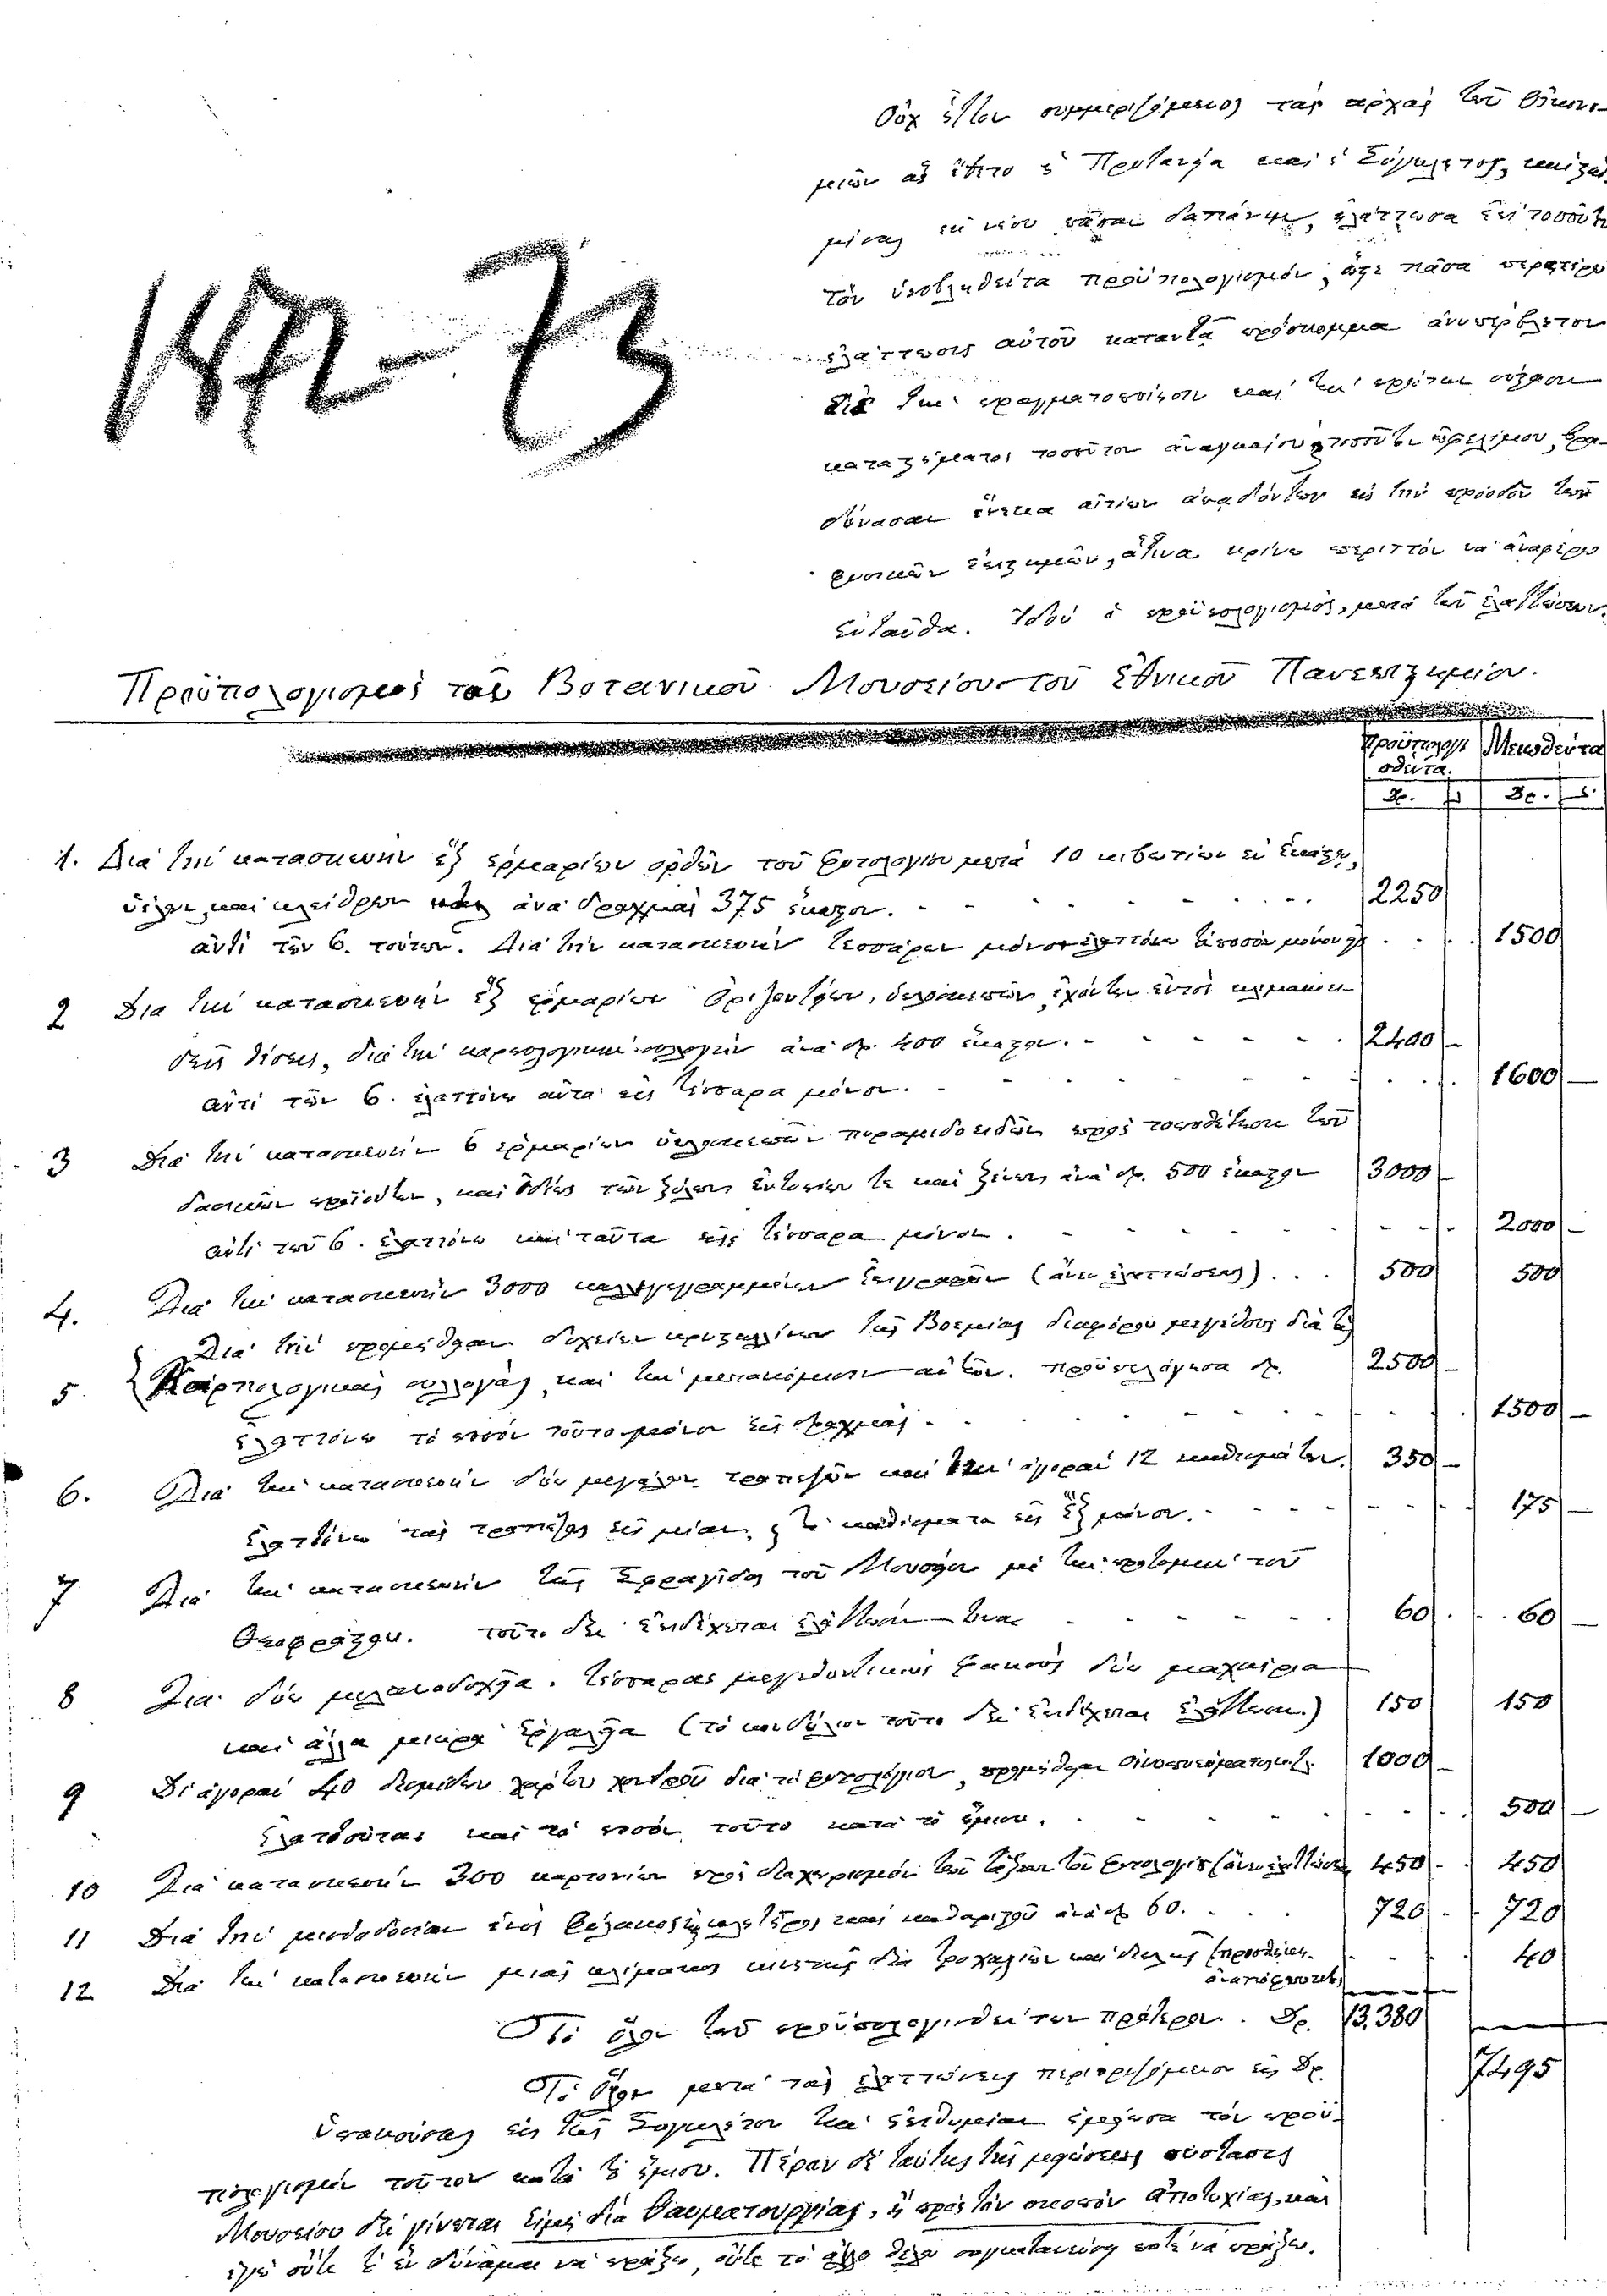 Οὐχ ἧττον συμμεριζόμενος τὰς ἀρχὰς τῶν Οἰκονο-
μιῶν ἃς ἔθετο ἡ Πρυτανεία καὶ ἡ Σύγκλητος,
μένας νέου πάσας δαπάνας, ἐλάττωσα ἐπὶ τοσοῦτο
τὸν ὑποβληθέντα προϋπολογισμόν, ὥστε πᾶσα περαιτέρω
ἐλάττωσις αὐτοῦ καταντᾷ πρόσκομμα ἀνυπέρβλητον
διὰ τὴν πραγματοποίησιν καὶ τὴν πρώτην σύστασιν
καταστήματος τοσοῦτον ἀναγκαίου τοσοῦτον ὠφελίμου, βρα-
δύνασαν ἕνεκα αἰτίων εἰς τὴν πρόοδον τῶν
φυσικῶν ἐπιστημῶν, ἅτινα κρίνω περιττὸν νὰ ἀναφέρω
ἐνταῦθα. Ἰδοὺ ὁ προϋπολογισμός, μετὰ τῶν ἐλαττώσεων.
1872-73
Προϋπολογισμὸς τοῦ Βοτανικοῦ Μουσείου τοῦ Ἐθνικοῦ Πανεπιστημείου.
Προϋπολογι Μειωθέντα
σθέντα.
Δρ. Δρ.
1. Διὰ τὴν κατασκευὴν ἓξ ἑρμαρίων ὀρθῶν τοῦ φυτολογίου μετὰ 10 κιβωτίων ἐν ἑκάστῳ,
ὕελων, καὶ κλείθρων ἀνὰ δραχμὰς 375 ἕκαστον. 2250
ἀντὶ τῶν 6. τούτων. Διὰ τὴν κατασκευὴν τεσσάρων μόνον ἐλαττόνω τὸ ποσὸν μόνον 1500
2 Διὰ τὴν κατασκευὴν ἓξ ἑρμαρίων ὁριζοντίων, ὑελοσκεπῶν, ἐχόντων ἐντὸς κλιμακοει-
δεῖς θέσεις, διὰ τὴν καρπολογικὴν συλλογὴν ἀνὰ δρ. 400 ἕκαστον. 2400
ἀντὶ τῶν 6. ἐλαττόνω αὐτὰ εἰς τέσσαρα μόνον. 1600
3 Διὰ τὴν κατασκευὴν 6 ἑρμαρίων ὑελοσκεπῶν πυραμιδοειδῶν πρὸς τοποθέτησιν τῶν
δασικῶν προϊόντων, καὶ ἰδίως τῶν ξύλων ἐντοπίων τε καὶ ξένων ἀνὰ δρ. 500 ἕκαστον 3000
ἀντὶ τῶν 6. ἐλαττόνω καὶ ταῦτα εἰς τέσσαρα μόνον. 2000
4. Διὰ τὴν κατασκευὴν 3000 καλλιγεγραμμένων ἐπιγραφῶν (ἄνευ ἐλαττώσεως) . . . 500 500
Διὰ τὴν προμήθειαν δοχείων κρυσταλλίνων τῆς Βοεμίας διαφόρου μεγέθους διὰ τὰς
5 Καρπολογικὰς συλλογὰς, καὶ τὴν μετακόμισιν αὐτῶν. προϋπελόγησα δρ. 2500
ἐλαττόνω τὸ ποσὸν τοῦτο μόνον εἰς δραχμὰς 1500
6. Διὰ τὴν κατασκευὴν δύο μεγάλων τραπεζῶν καὶ τὴν ἀγορὰν 12 καθισμάτων. 350
ἐλαττόνω τὰς τραπέζας εἰς μίαν, τὰ καθίσματα εἰς ἓξ μόνον. 175
7 Διὰ τὴν κατασκευὴν τῆς Σφραγίδος τοῦ Μουσείου μὲ τὴν προτομὴν τοῦ
Θεοφράστου. τοῦτο δὲν ἐνδέχεται ἐλάττωσίν τινα 60 60
8 Διὰ δύο μελανοδοχεῖα. τέσσαρας μεγεθυντικοὺς φακοὺς δύο μαχαίρια
καὶ ἄλλα μικρὰ ἐργαλεῖα (τὸ κονδύλιον τοῦτο δὲν ἐνδέχεται ἐλάττωσιν.) 150 150
9 Δι' ἀγορὰν 40 δεσμίδων χάρτου χονδροῦ διὰ τὸ φυτολόγιον, προμήθειαν οἰνοπνεύματος κτλ. 1000
ἐλαττοῦται καὶ τὸ ποσὸν τοῦτο κατὰ τὸ ἥμισυ. 500
10 Διὰ κατασκευὴν 300 καρτονίων πρὸς διαχωρισμὸν τῶν τάξεων τοῦ φυτολογίου (ἄνευ ἐλαττώσεως 450 450
11 Διὰ τὴν μισθοδοσίαν ἑνὸς φύλακος καὶ καθαριστοῦ ἀνὰ δρ 60. 720 720
12 Διὰ τὴν κατασκευὴν μιᾶς κλίμακος κινητῆς διὰ τροχαλιῶν καὶ διπλῆς (προσθήκη 40
ἀναπόφευκτος)
Τὸ ὅλον τῶν προϋπολογισθέντων πρότερον. Δρ. 13.380
Τὸ ὅλον μετὰ τὰς ἐλαττώσεις περιοριζόμενον εἰς Δρ. 7495
Ὑπακούσας εἰς τῆς Συγκλήτου τὴν ἐπιθυμίαν ἐμείωσα τὸν προϋ-
πολογισμὸν τοῦτον κατὰ τὸ ἥμισυ. Πέραν δὲ ταύτης τῆς μειώσεως σύστασις
Μουσείου δὲν γίνεται εἰμὴ διὰ θαυματουργίας, ἢ πρὸς τὸν σκοπὸν ἀποτυχίας, καὶ
ἐγὼ οὔτε τὸ ἓν δύναμαι νὰ πράξω, οὔτε τὸ ἄλλο θέλω συγκατανεύσῃ ποτὲ νὰ πράξω.